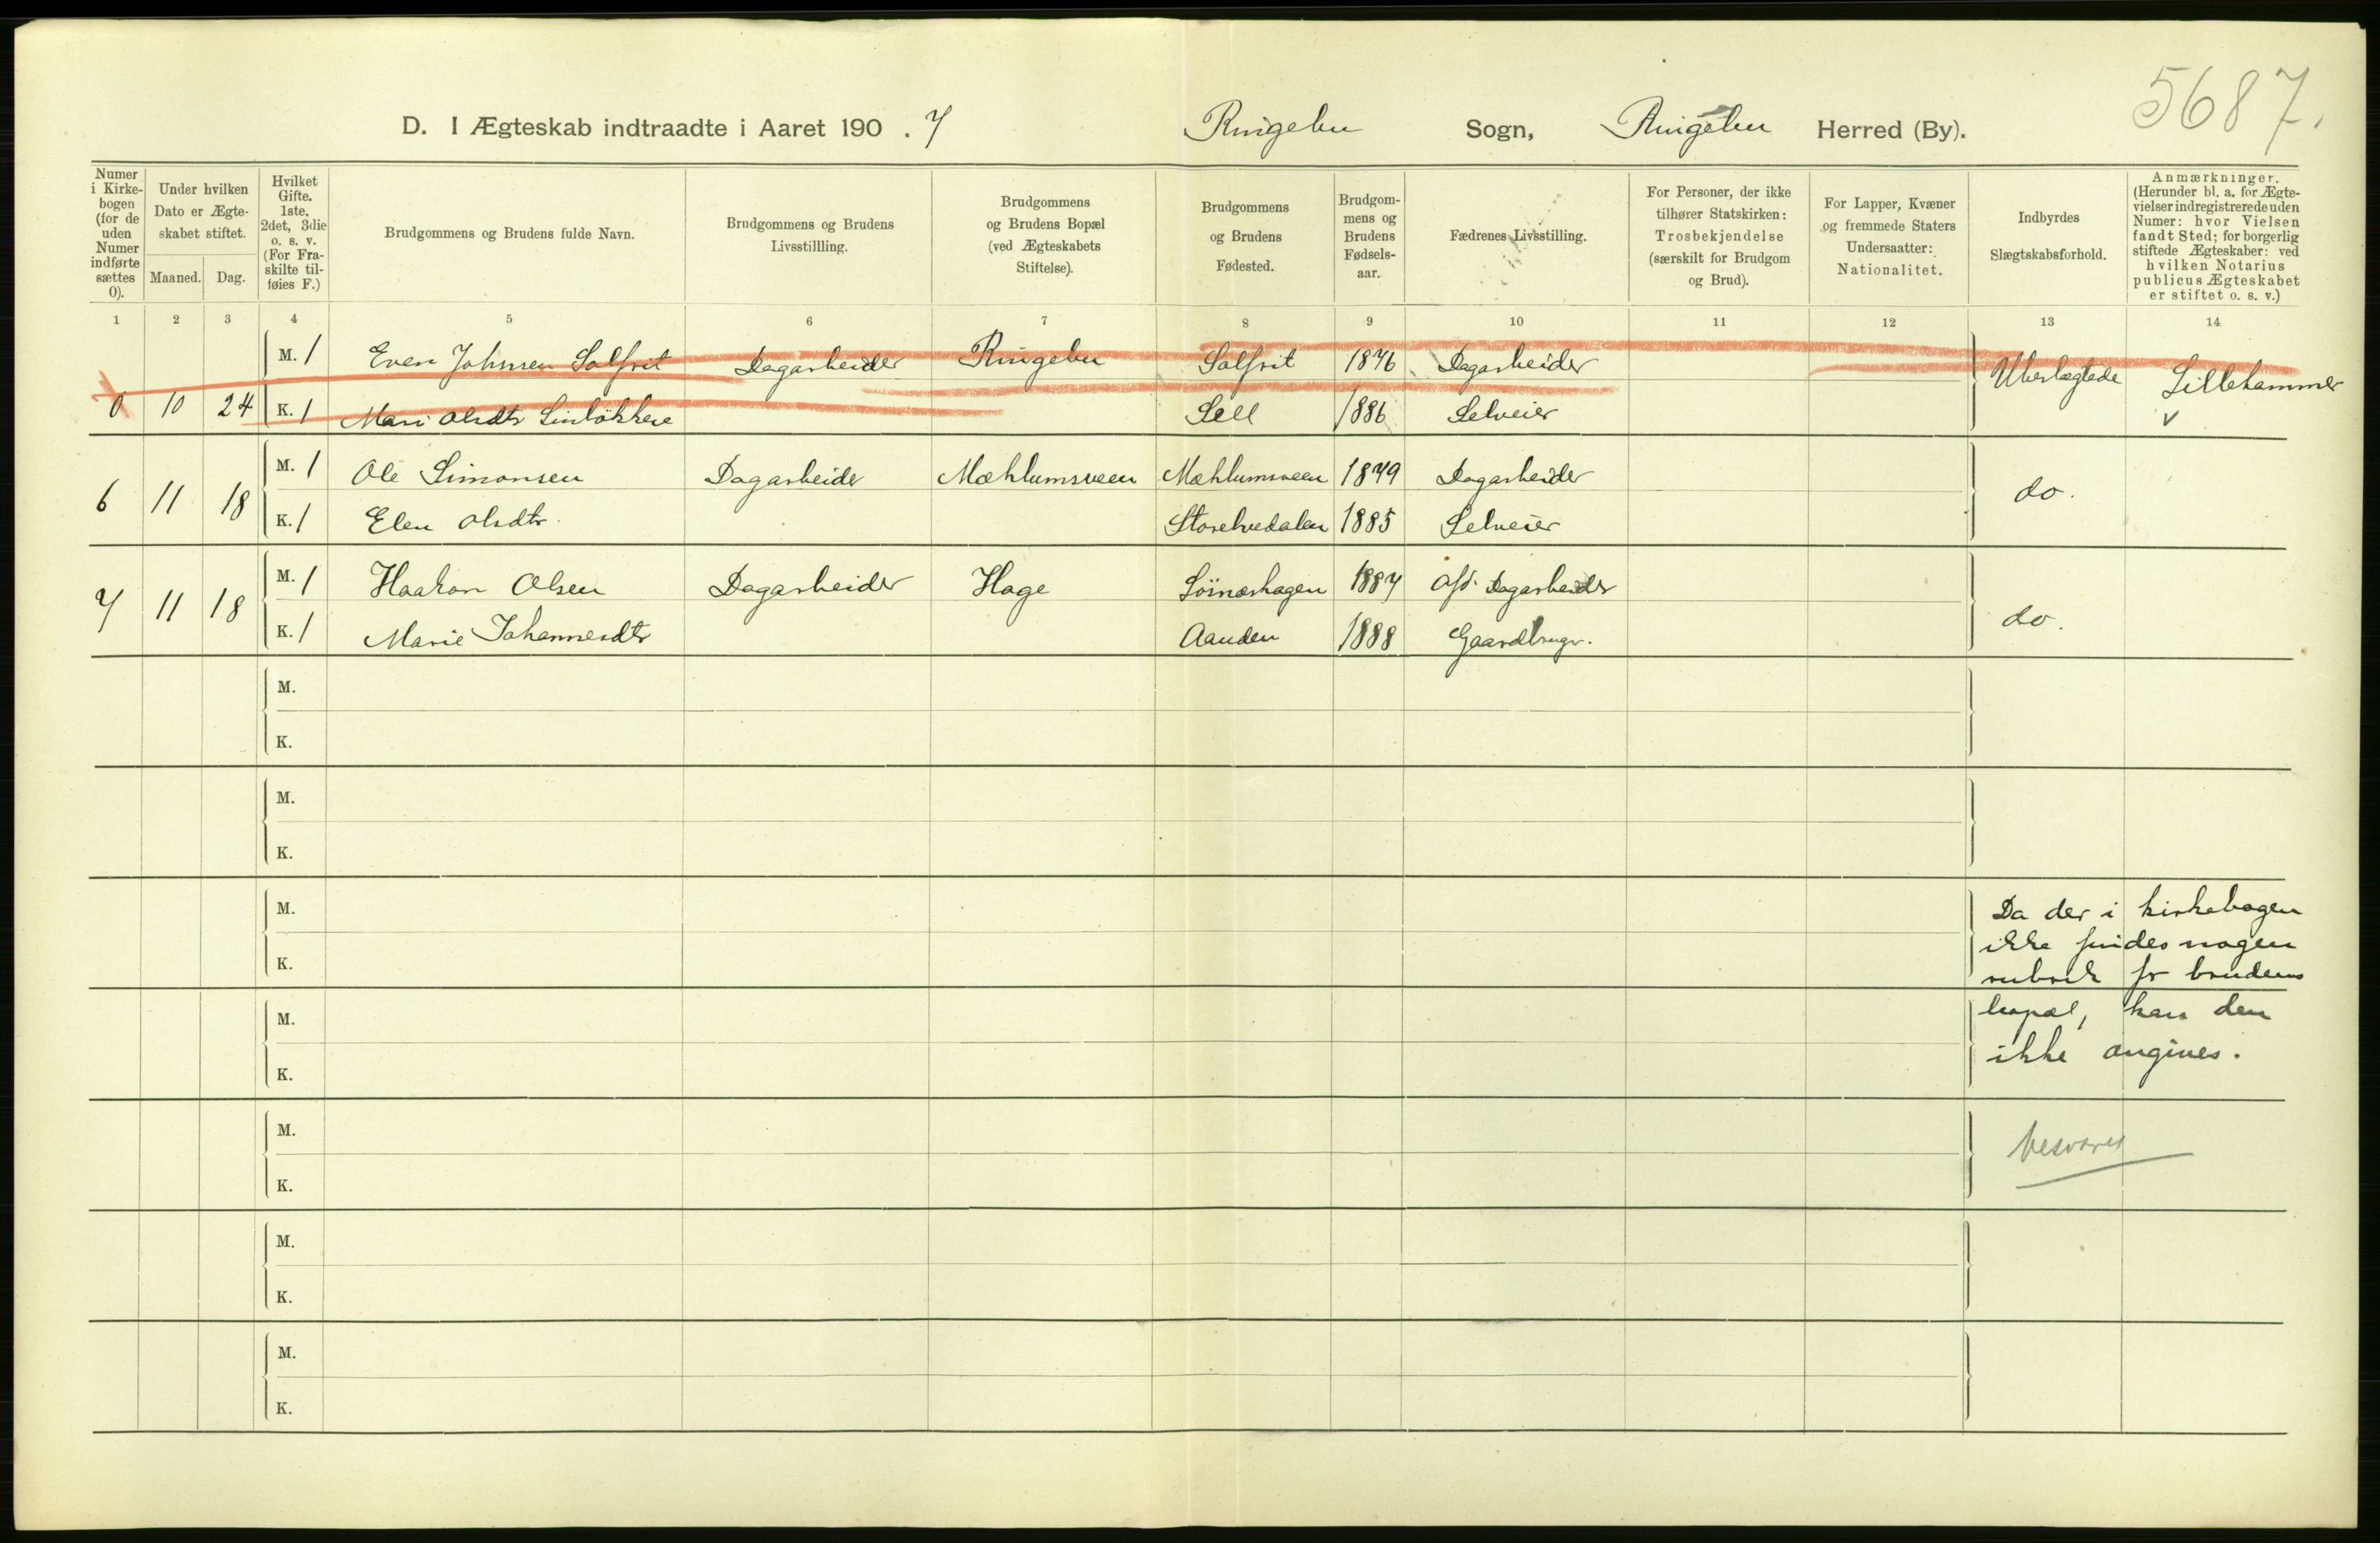 5687.
D. I Ægteskab indtraadte i Aaret 190 . 7 Ringebu Sogn, Ringebu Herred (By).
Numer i Kirkebogen (for de uden Numer indførte sættes 0).
Under hvilken Dato er Ægteskabet stiftet.
Maaned. Dag.
Hvilket Gifte. 1ste, 2det, 3die o. s. v. (For Fraskilte tilføies F.)
Brudgommens og Brudens fulde Navn.
Brudgommens og Brudens Livsstillling.
Brudgommens og Brudens Bopæl (ved Ægteskabets Stiftelse).
Brudgommens og Brudens Fødested.
Brudgommens og Brudens Fødselsaar.
Fædrenes Livsstilling.
For Personer, der ikke tilhører Statskirken: Trosbekjendelse (særskilt for Brudgom og Brud).
For Lapper, Kvæner og fremmede Staters Undersaatter: Nationalitet.
Indbyrdes Slægtskabsforhold.
Anmærkninger. (Herunder bl. a. for Ægtevielser indregistrerede uden Numer: hvor Vielsen fandt Sted; for borgerlig stiftede Ægteskaber: ved hvilken Notarius publicus Ægteskabet er stiftet o. s. v.)
1 2 3 4 5 6 7 8 9 10 11 12 13 14
M. 1 Even Johnsen Solfrit Dagarbeider Ringebu Solfrit 1876 Dagarbeider Ubeslægtede Lillehammer
0 10 24 K. 1 Mari Olsdtr Linløkken Sell 1886 Selveier
M. 1 Ole Simonsen Dagarbeide Mæhlumsveen Mæhlumsveen 1879 Dagarbeider
6 11 18 K. 1 Elen Olsdtr. Storehvedalen 1885 Selveier do.
M. 1 Haakon Olsen Dagarbeider Hage Søinæshagen 1887 Afd. Dagarbeider
7 11 18 K. 1 Marie Johannesdtr Aanden 1888 Gaardbruger. do.
M.
K.
M.
K.
M. Da der i kirkebogen
ikke findes nogen
K. rubrik for brudens
M. bopæl, kan den
ikke angives.
K.
M. besvares
K.
M.
K.
M.
K.